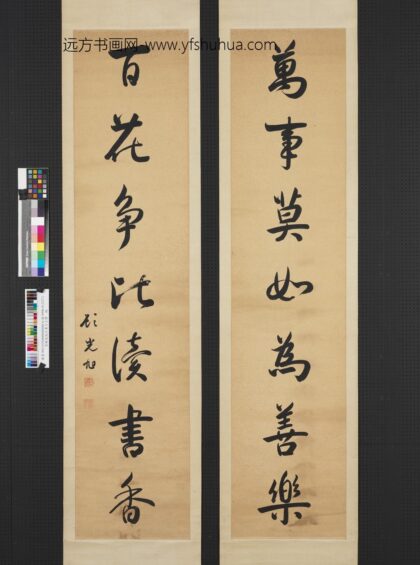 远方书画网-www.yfshuhua.com
萬事莫如為善樂
百花争比讀書香
顧光旭